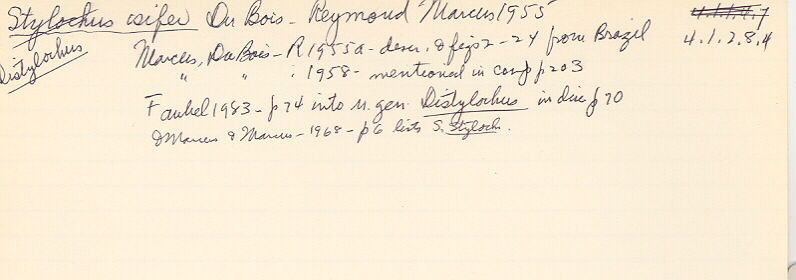 Stylochus isifer Du Bois-Reymond Marcus 1955
4.1.1.4.7
4.1.2.8.4
Distylochus
Marcus, DuBois-R 1955a - descr. & figs 2-24 from Brazil
" " : 1958 - mentioned in comp p 203
Faubel 1983 - p 74 into n. gen. Distylochus in disc p 70
& Marcus & Marcus - 1968 - p 6 lists S.